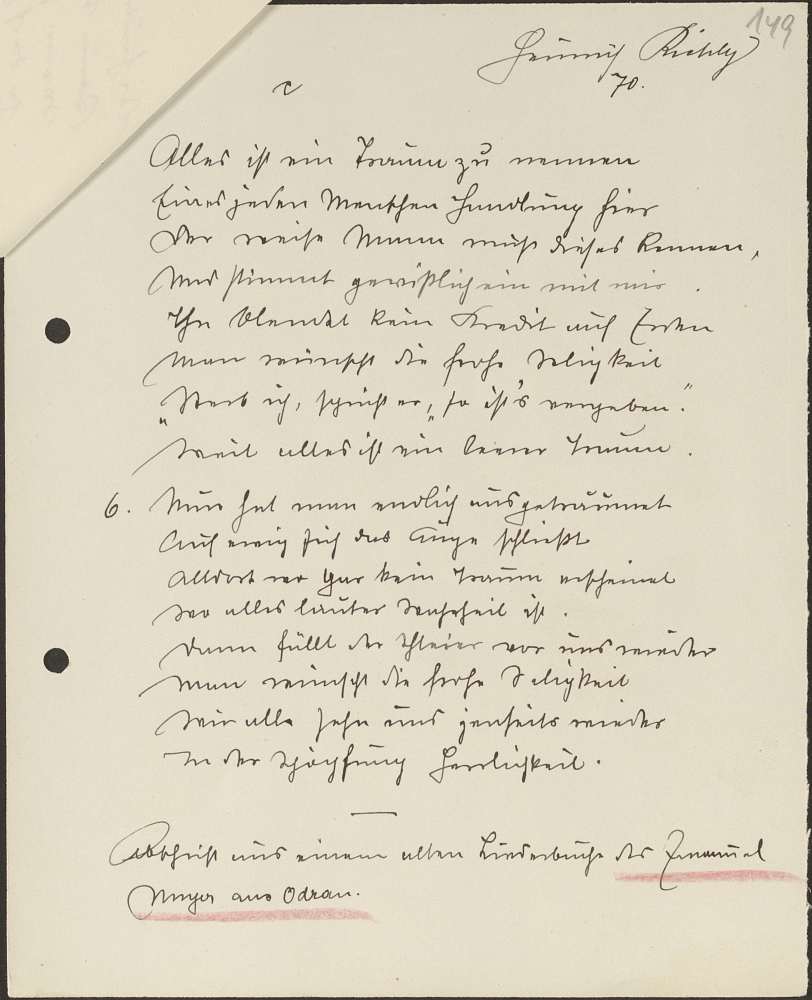 149
Heinrich Richly
70.
c
Alles ist ein Traum zu nennen
Eines jeden Menschen Handlung hier
Der weise Mann muß dieses kennen,
Und stimmt gewißlich ein mit mir.
Ihn blendet kein Kredit auf Erden
Man wünscht die frohe Seligkeit
„Sterb ich, spricht er, so ist's vergeben."
Weil alles ist ein leerer Traum.
6. Nun hat man endlich ausgeträumet
Auf ewig sich das Auge schließt
Alldort wo gar kein Traum erscheinet
Wo alles lauter Wahrheit ist.
Dann fällt der Schleier vor uns nieder
Man wünscht die frohe Seligkeit
Wir alle sehn uns jenseits wieder
In der Schöpfung Herrlichkeit.
Abschrift aus einem alten Liederbuche des Emanuel
Mayer aus Odrau.